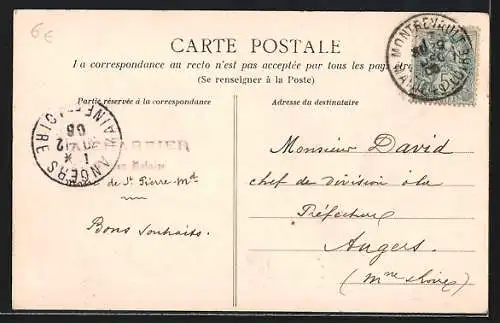 6€
CARTE POSTALE
La correspondance au recto n'est pas acceptée par tous les pays étr
(Se renseigner à la Poste)
Partie réservée à la correspondance
Adresse du destinataire
MONTREVAULT
MAINE-ET-LOIRE
ANGERS
MAINE-ET-LOIRE
Monsieur David
chef de division à la
Préfecture
Angers.
(Mne & Loire)
de St Pierre-Md
Bons souhaits.